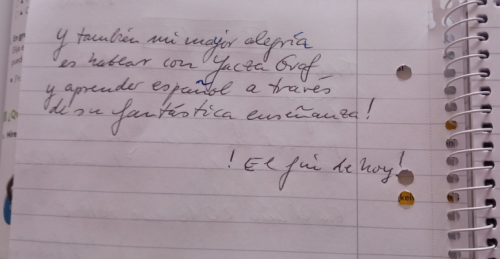 y también mi major alegría
es hablar con Yacza Graf
y aprender español a través
de su fantástica enseñanza!
! El fin de hoy!